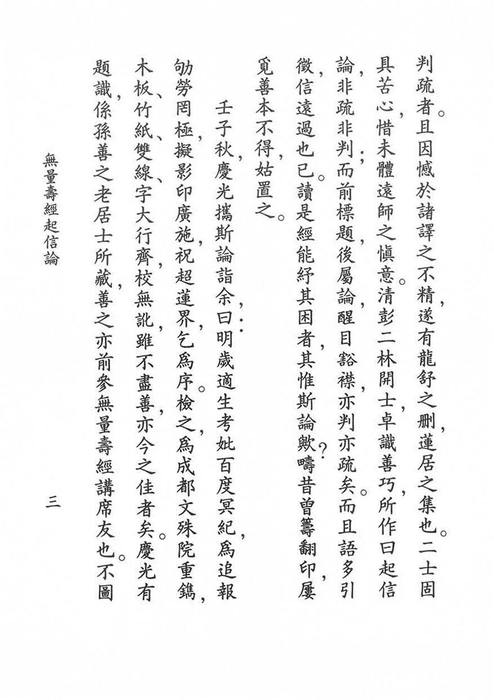 判疏者。且因憾於諸譯之不精，遂有龍舒之刪，蓮居之集也。二士固
具苦心，惜未體遠師之愼意。清彭二林開士，卓識善巧，所作曰起信
論，非疏非判；而前標題，後屬論，醒目豁襟，亦判亦疏矣。而且語多引
徵，信遠過也已。讀是經能紓其困者，其惟斯論歟？疇昔曾籌翻印，屢
覓善本不得，姑置之。
壬子秋，慶光攜斯論詣余曰：明歲適生考妣百度冥紀，爲追報
劬勞罔極，擬影印廣施，祝超蓮界，乞爲序。檢之，爲成都文殊院重鐫，
木板、竹紙、雙線、字大行齊，校無訛，雖不盡善，亦今之佳者矣。慶光有
題識，係孫善之老居士所藏，善之亦前參無量壽經講席友也。不圖
無量壽經起信論
三